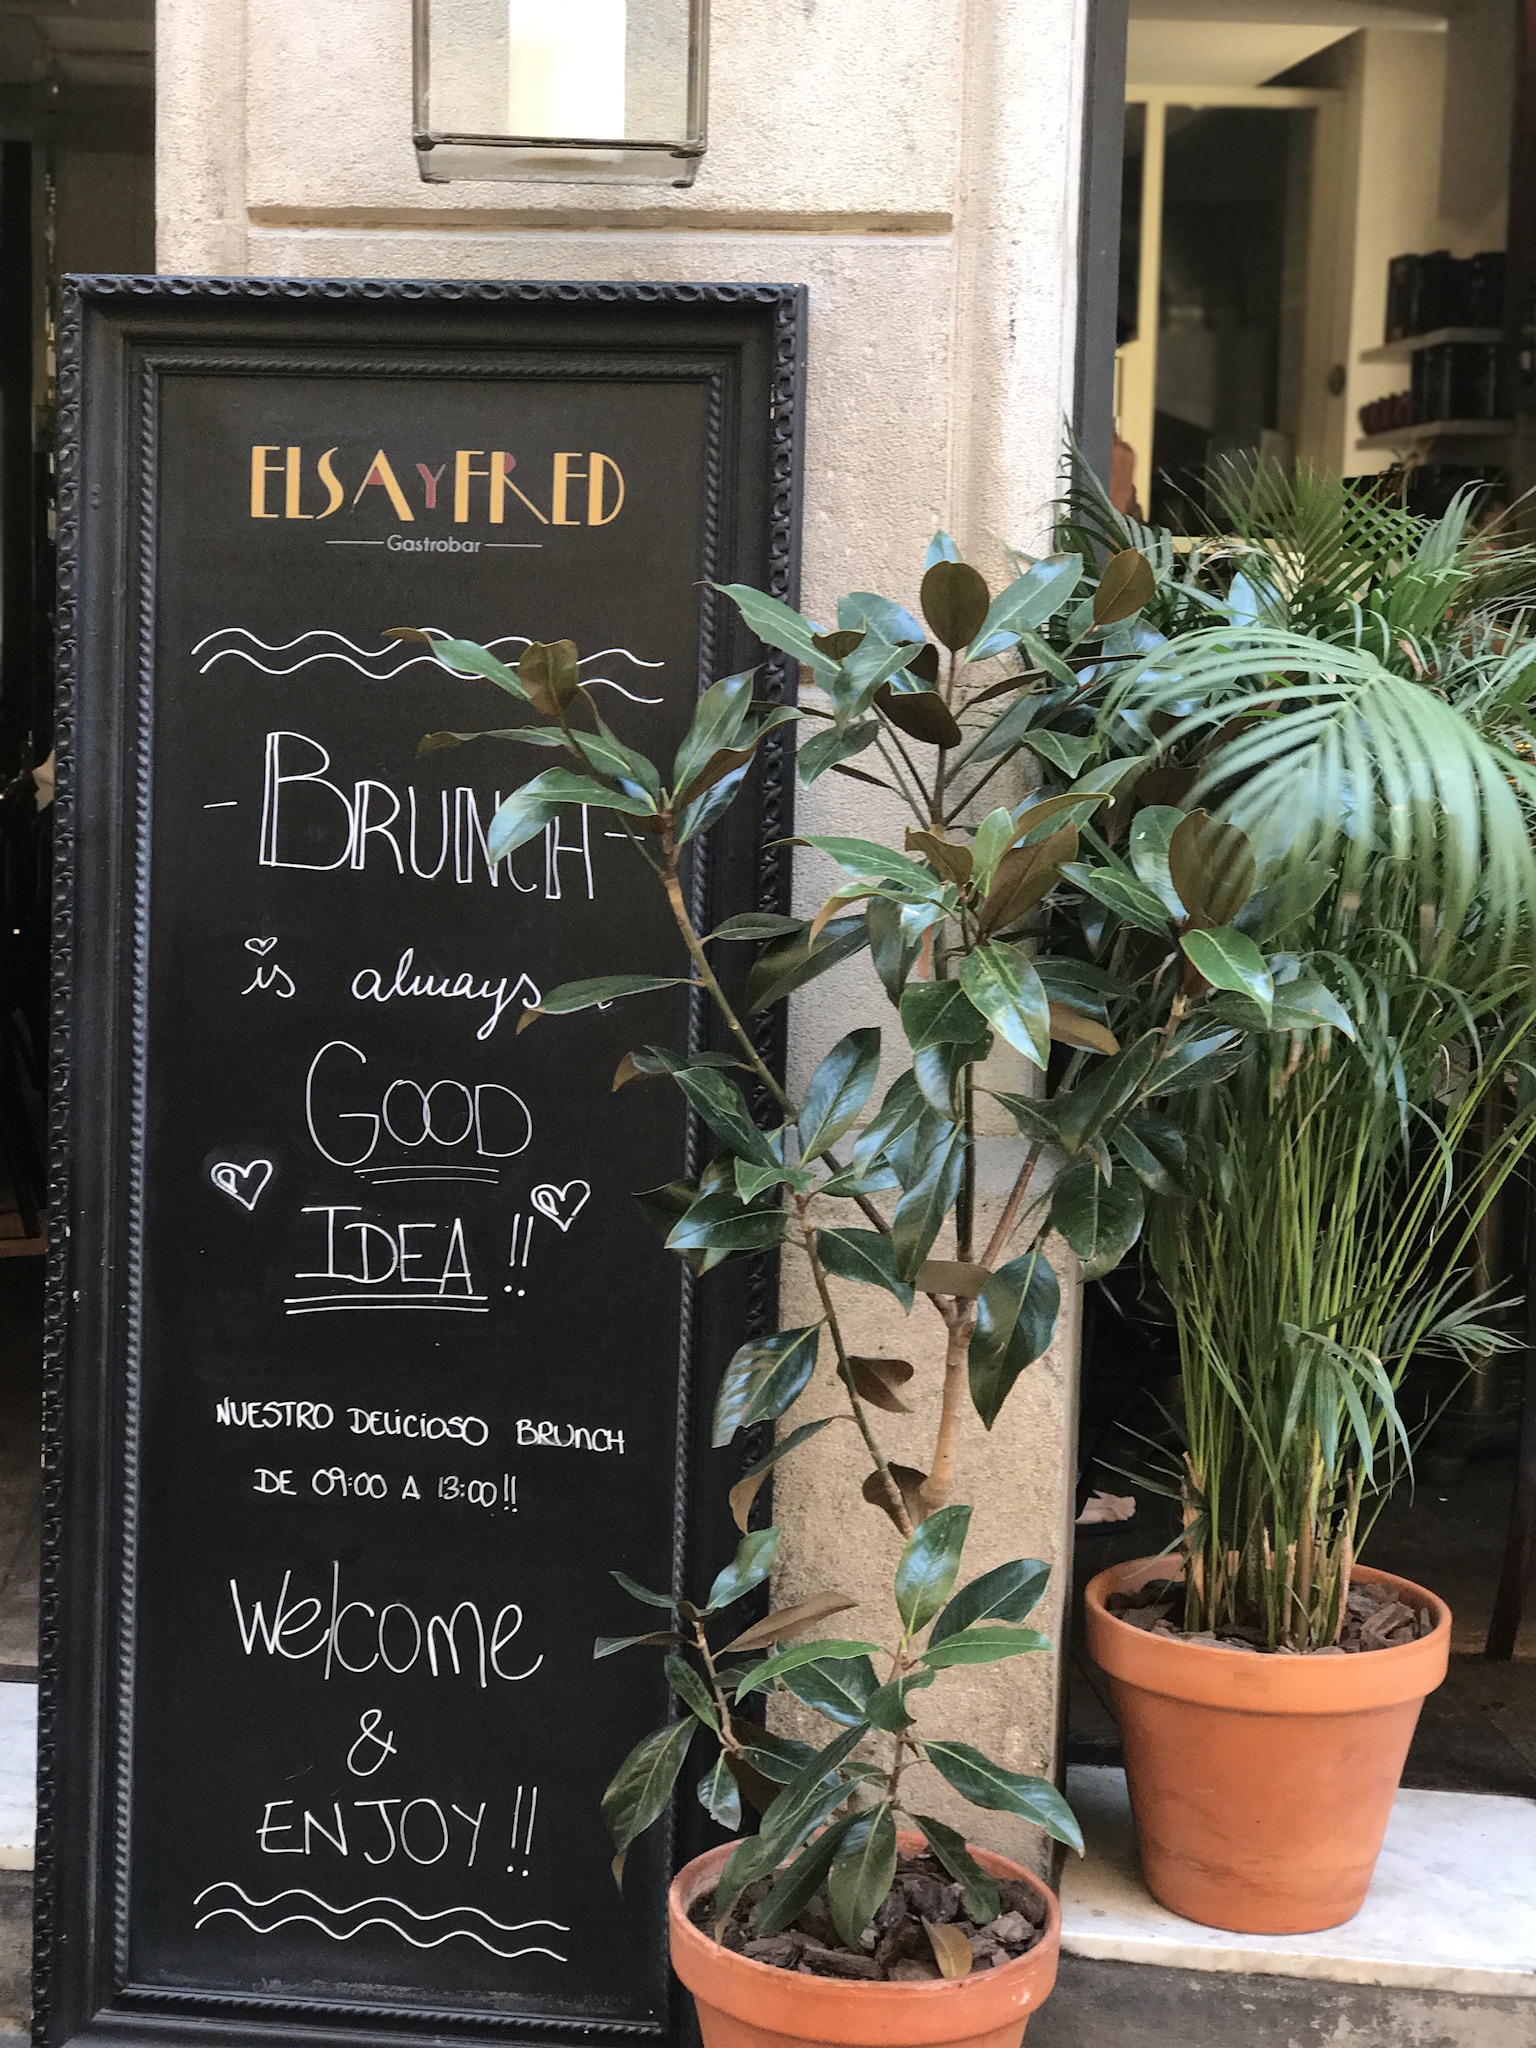 ELSA Y FRED
Gastrobar
- BRUNCH -
is always
GOOD
IDEA !!
NUESTRO DELICIOSO BRUNCH
DE 09:00 A 13:00!!
Welcome
&
ENJOY!!